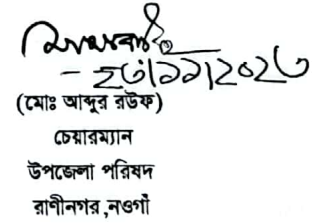 ২৩/১১/২০২৩
(মোঃ আব্দুর রউফ)
চেয়ারম্যান
উপজেলা পরিষদ
রাণীনগর,নওগাঁ